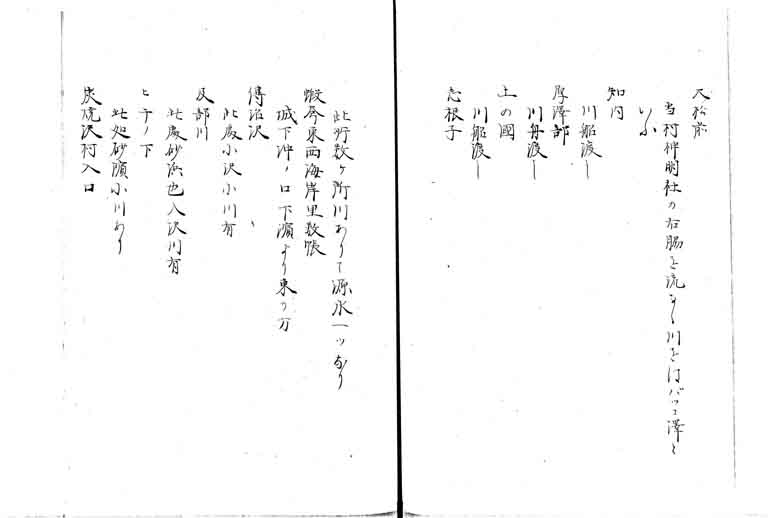 大松前
当村神明社の右脇を流るゝ川を河バツコ澤と
いふ
知内
川船渡し
厚澤部
川舟渡し
上の國
川船渡し
志根子
此外数ヶ所川ありて源水一ツなり
蝦夷東西海岸里数帳
城下沖ノ口下濱より東の方
傳治沢
此處小沢小川有
及部川
此處砂浜也入沢川有
此処砂濱小川あり
炭焼沢村入口